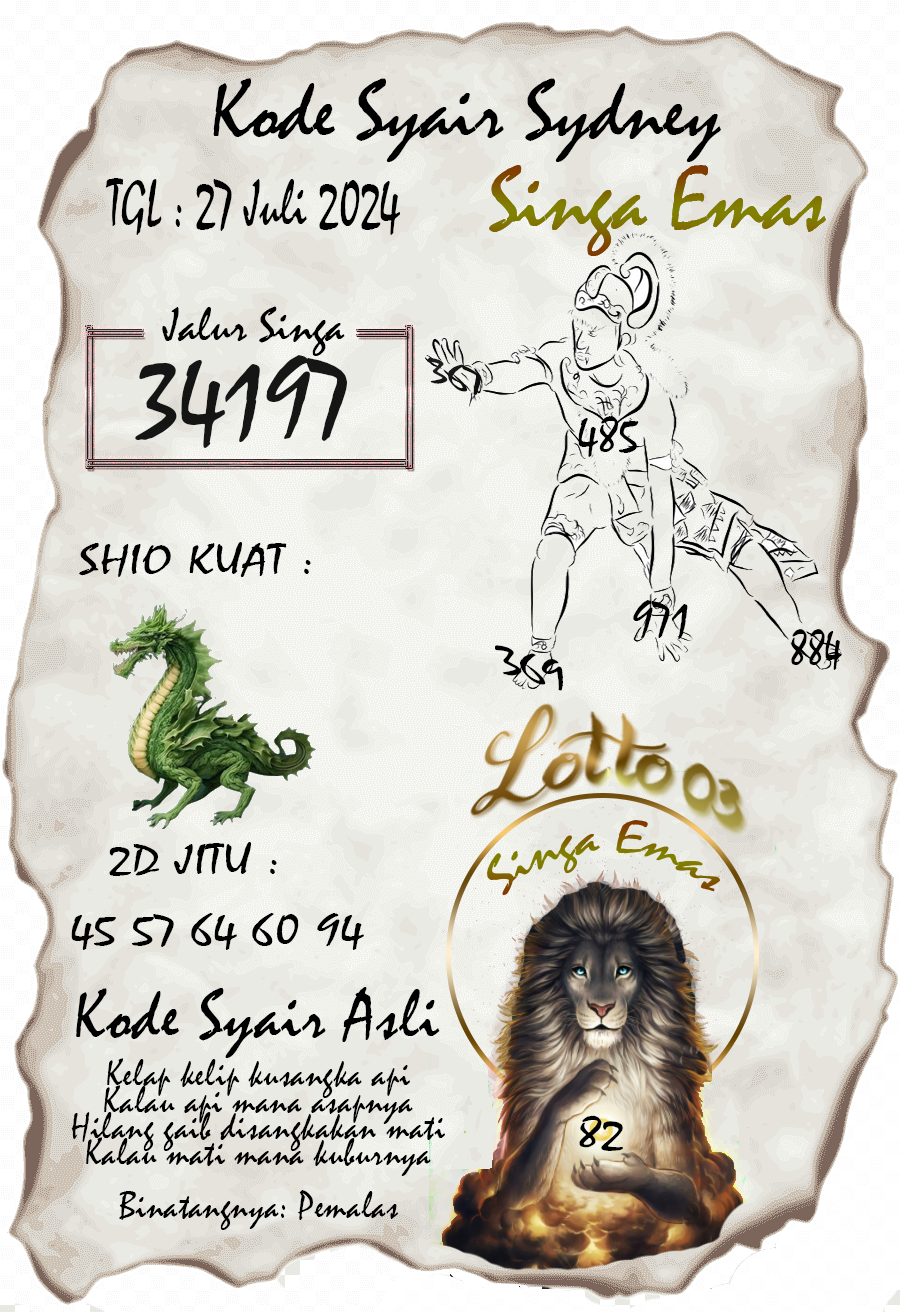 Kode Syair Sydney
TGL : 27 Juli 2024
Singa Emas
Jalur Singa
34197
367
485
SHIO KUAT :
971
369
884
Lotto 03
Singa Emas
2D JITU :
45 57 64 60 94
Kode Syair Asli
Kelap kelip kusangka api
Kalau api mana asapnya
Hilang gaib disangkakan mati
Kalau mati mana kuburnya
82
Binatangnya: Pemalas